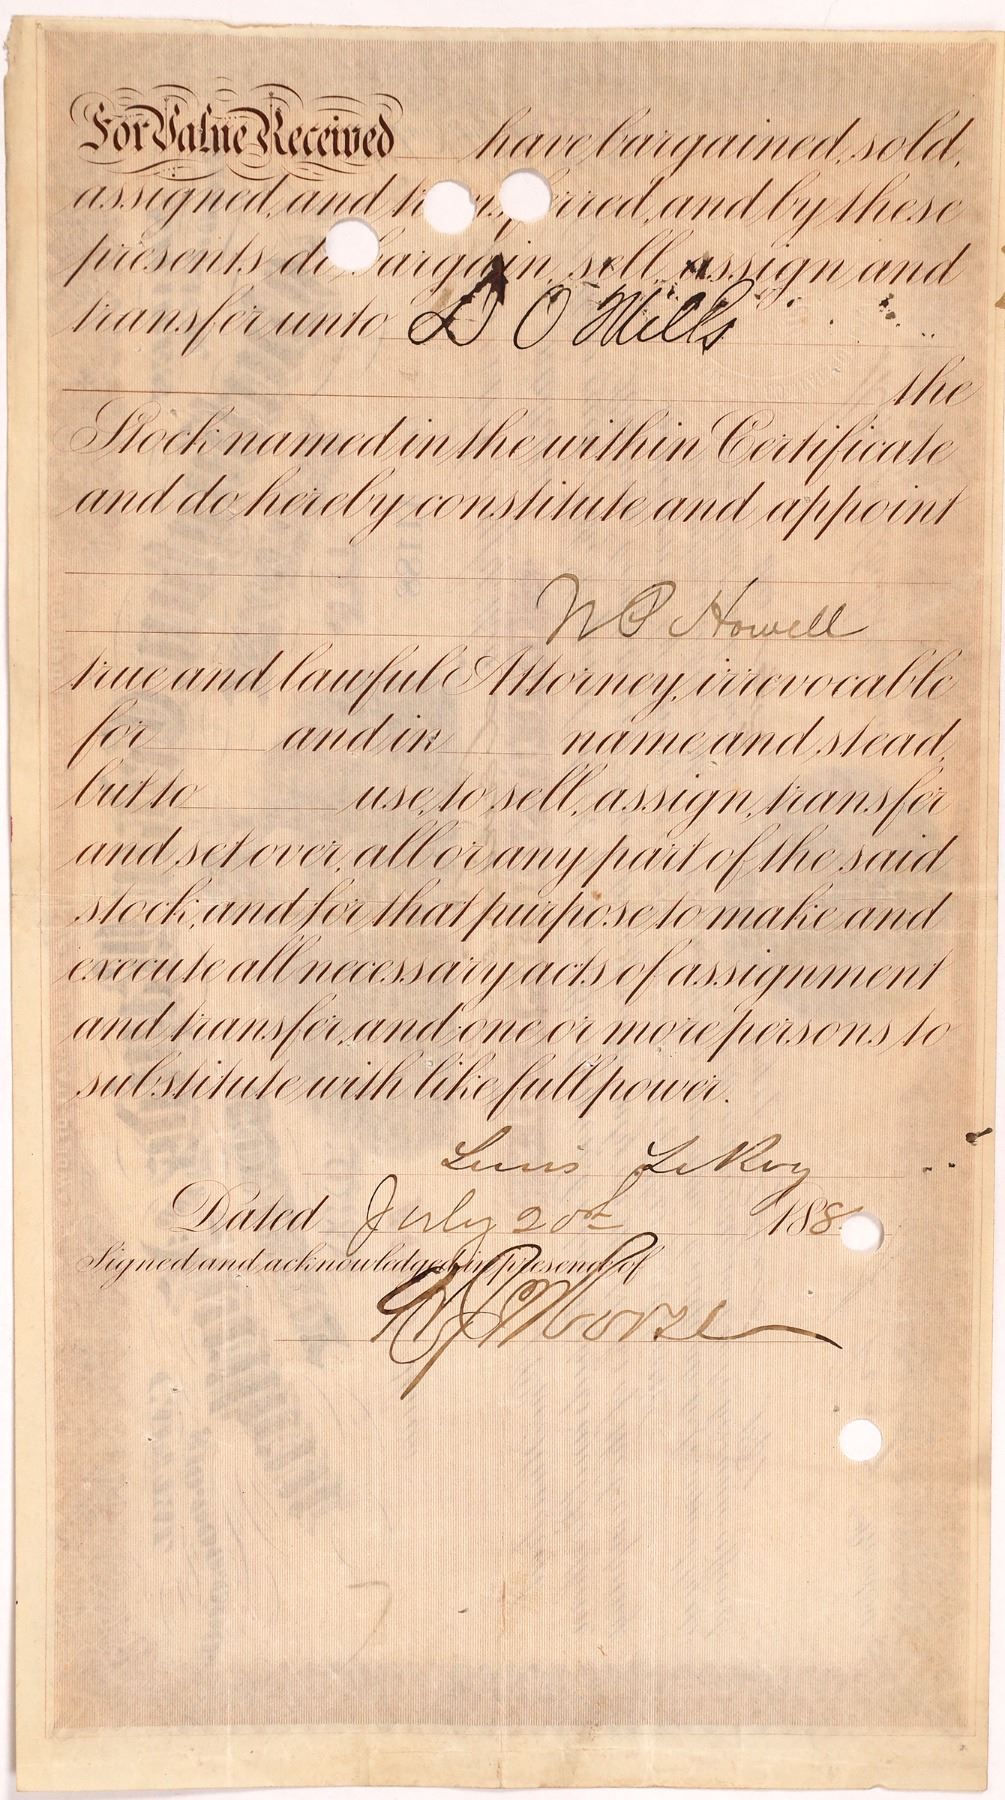 For Value Received have bargained, sold,
assigned, and and by these
presents do bargain, sell, assign and
transfer unto D O Mills
the
Stock named in the within Certificate
and do hereby constitute and appoint
Howell
true and lawful Attorney, irrevocable
for and in name and stead,
but to use, to sell, assign, transfer
and set over, all or any part of the said
stock; and for that purpose to make and
execute all necessary acts of assignment
and transfer, and one or more persons to
substitute with like full power.
LeRoy
Dated July 20th 188
Signed and acknowledged in presence of